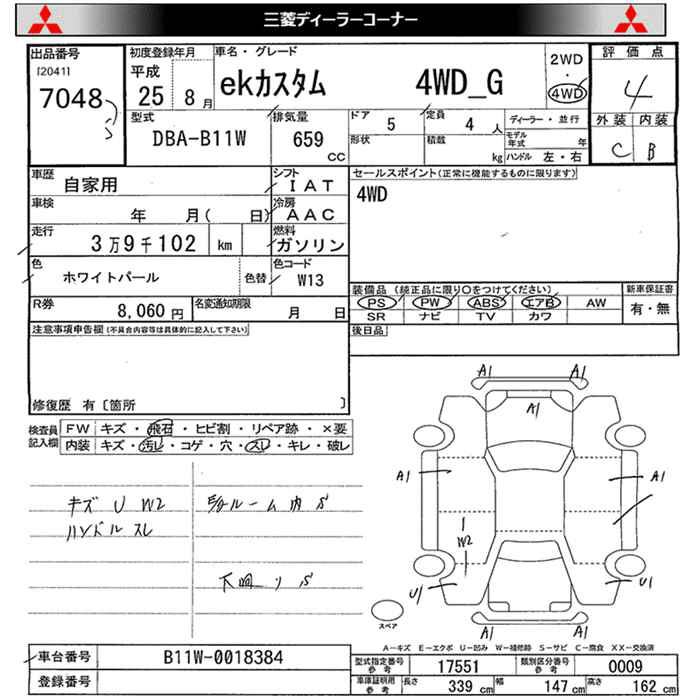 三菱ディーラーコーナー
出品番号
[2041]
7048
初度登録年月
平成
25 8月
車名・グレード
ekカスタム 4WD_G
2WD
・
4WD
評価点
4
外装 内装
C B
型式
DBA-B11W
排気量
659
cc
ドア 5
定員 4 人
形状
積載 kg
ディーラー・並行
モデル年式 年
ハンドル 左・右
車歴 自家用
シフト IAT
車検 年 月( 日)
冷房 AAC
走行 3万9千102 km
燃料 ガソリン
色 ホワイトパール
色替
色コード W13
R券 8,060円
名変通知期限 月 日
セールスポイント(正常に機能するものに限ります)
4WD
装備品(純正品に限り○をつけてください)
新車保証書
PS PW ABS エアB AW
SR ナビ TV カワ
有・無
後日品
注意事項申告欄(不具合内容等は具体的に記入して下さい)
修復歴 有〔箇所 〕
検査員記入欄
FW キズ・飛石・ヒビ割・リペア跡・×要
内装 キズ・汚レ・コゲ・穴・スレ・キレ・破レ
キズ U W2
ハンドルスレ
ルーム内 S
下廻リ S
A1 A1
A1
A1 A1
W2
U1 U1
A1 A1
スペア
A-キズ E-エクボ U-凹み W-補修跡 S-サビ C-腐食 XX-交換済
車台番号 B11W-0018384
登録番号
型式指定番号参考 17551
類別区分番号参考 0009
車庫証明用参考 長さ 339 cm 幅 147 cm 高さ 162 cm